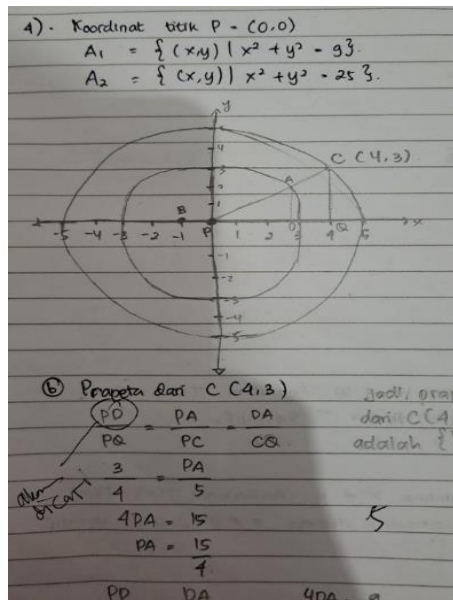 4). Koordinat titik P = (0,0)
A₁ = { (x,y) | x² + y² = 9}.
A₂ = { (x,y) | x² + y² = 25 }.
y
4
C (4,3)
3
2
A
1
B
-5 -4 -3 -2 -1 P 1 2 D 3 4 Q 5 x
-1
-2
-3
-4
-5
ⓑ Prapeta dari C (4,3)
PD/PQ = PA/PC = DA/CQ
3/4 = PA/5
akan dicari
4PA = 15
PA = 15/4.
PD DA 4DA = 9
Jadi, prap
dari C(4,
adalah {
5